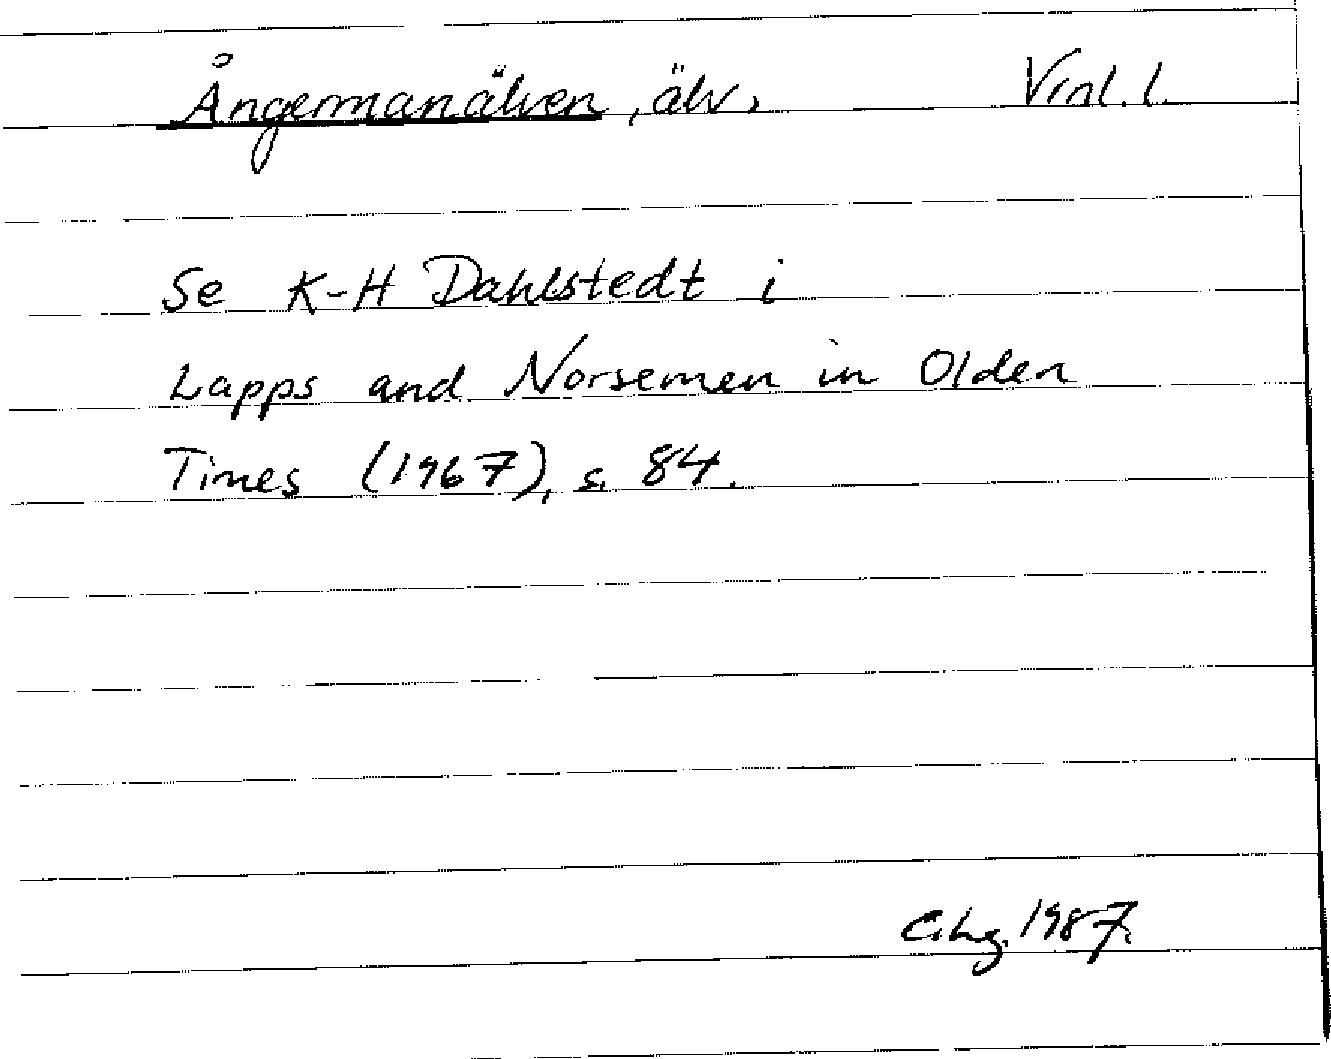 Ångermanälven, älv, Vnl. l.
Se K-H Dahlstedt i
Lapps and Norsemen in Olden
Times (1967), s. 84.
C.Lg. 1987.